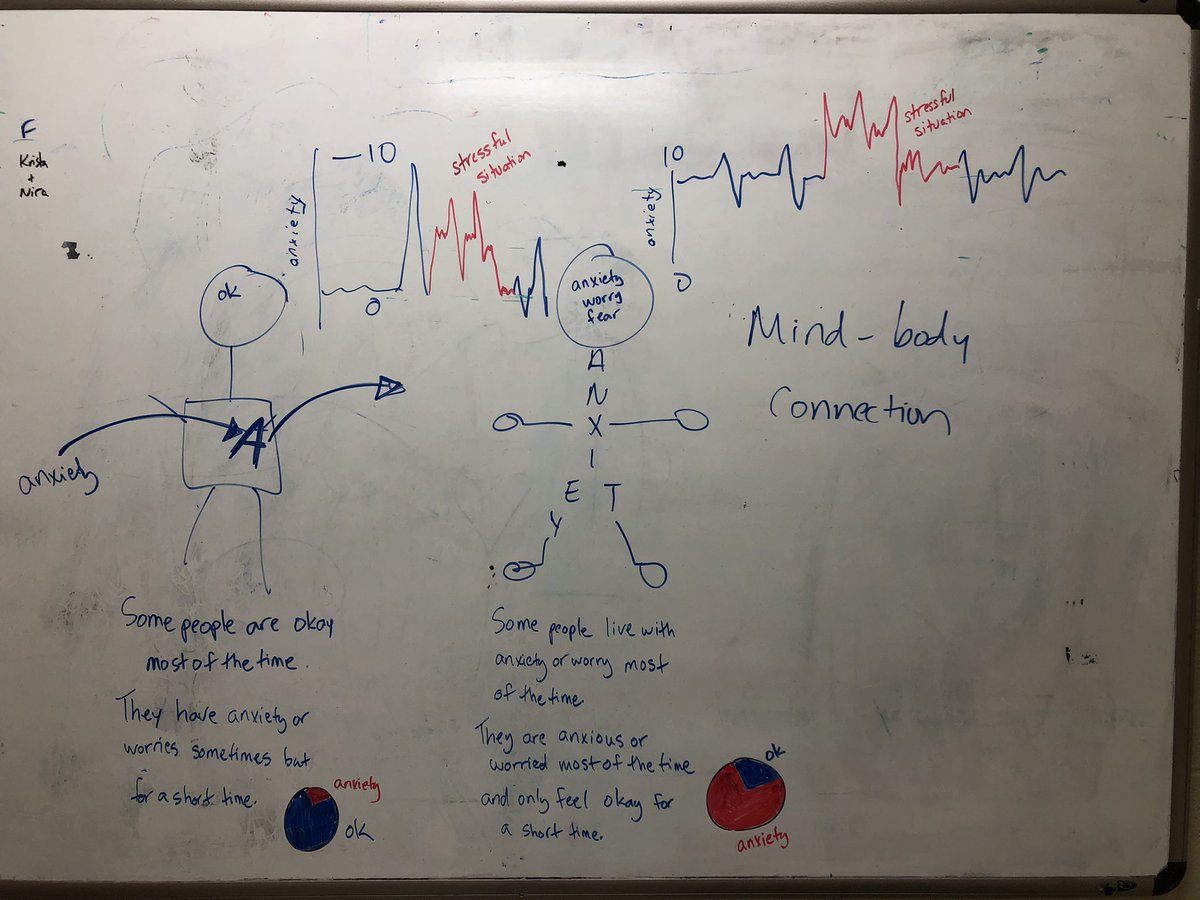 F
Krista
+
Nira
anxiety
—10
0
stressful
situation
ok
anxiety
A
Some people are okay
most of the time.
They have anxiety or
worries sometimes but
for a short time.
anxiety
ok
anxiety
worry
fear
A
N
X
I
E T
Y
Some people live with
anxiety or worry most
of the time.
They are anxious or
worried most of the time
and only feel okay for
a short time.
ok
anxiety
10
anxiety
0
stressful
situation
Mind-body
Connection